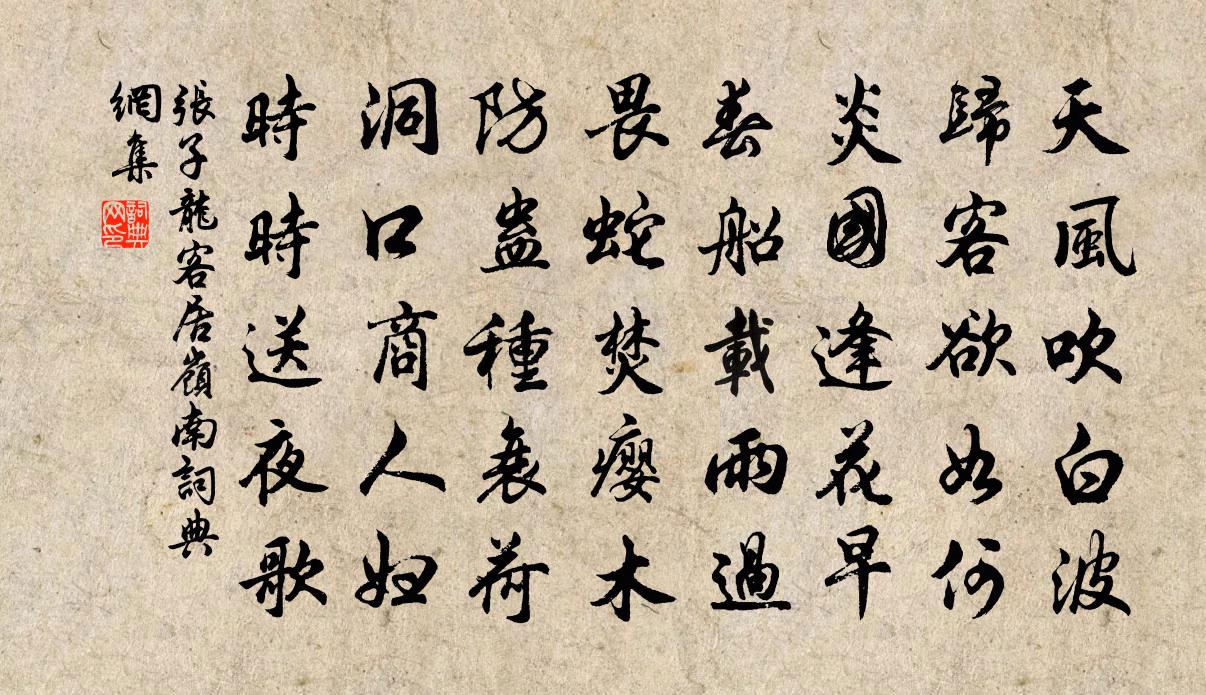 天風吹白波
歸客欲如何
炎國逢花早
春船載雨過
畏蛇焚癭木
防蠱種蘘荷
洞口商人妇
時時送夜歌
張子龍客居嶺南詞典
網集
詞典
网印